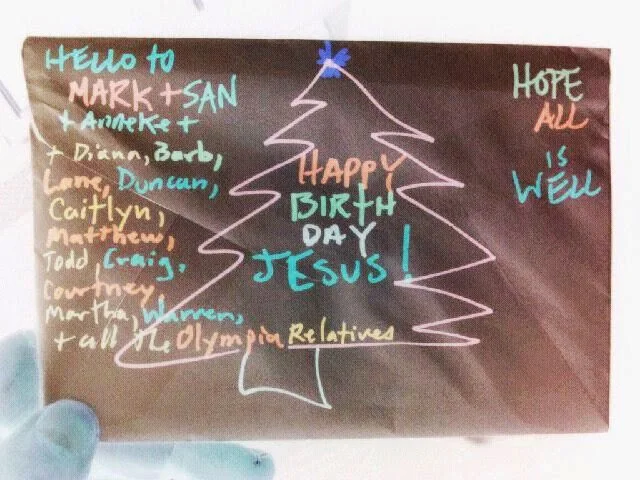 HELLO to
MARK + SAN
+ Anneke +
+ Diann, Barb,
Lane, Duncan,
Caitlyn,
Matthew,
Todd, Craig,
Courtney,
Martha, Warren,
+ all the Olympia Relatives
HAPPY
BIRTH
DAY
JESUS!
HOPE
ALL
IS
WELL